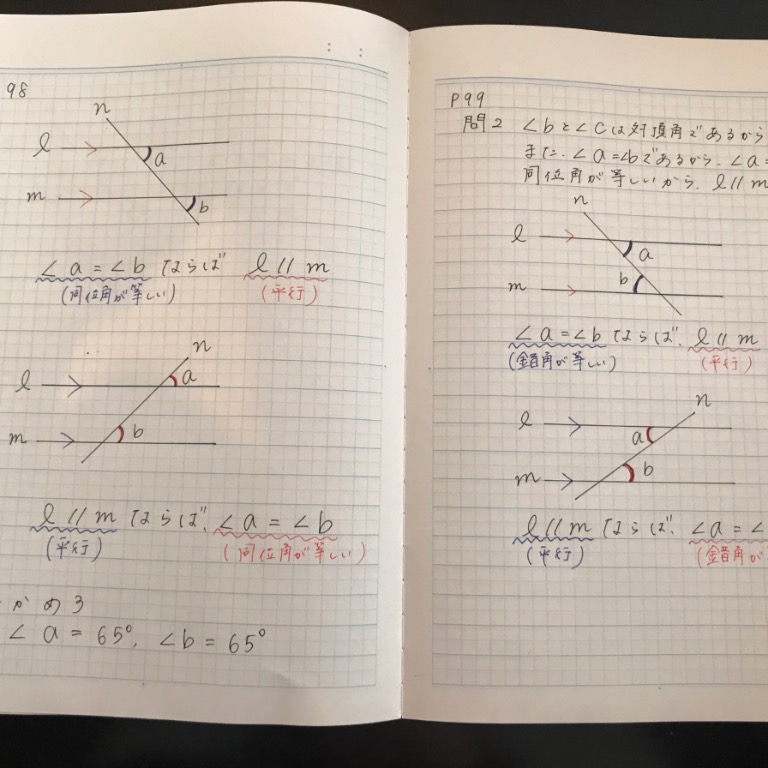 98
n
l
a
m
b
∠a=∠b ならば l // m
(同位角が等しい) (平行)
n
l
a
m
b
l // m ならば、∠a = ∠b
(平行) (同位角が等しい)
かめ3
∠a = 65°, ∠b = 65°
P99
問2 ∠bと∠cは対頂角であるから
また、∠a=∠bであるから、∠a=
同位角が等しいから、l // m
n
l
a
b
m
∠a=∠b ならば、l // m
(錯角が等しい) (平行)
n
l
a
m
b
l // m ならば、∠a = ∠
(平行) (錯角が